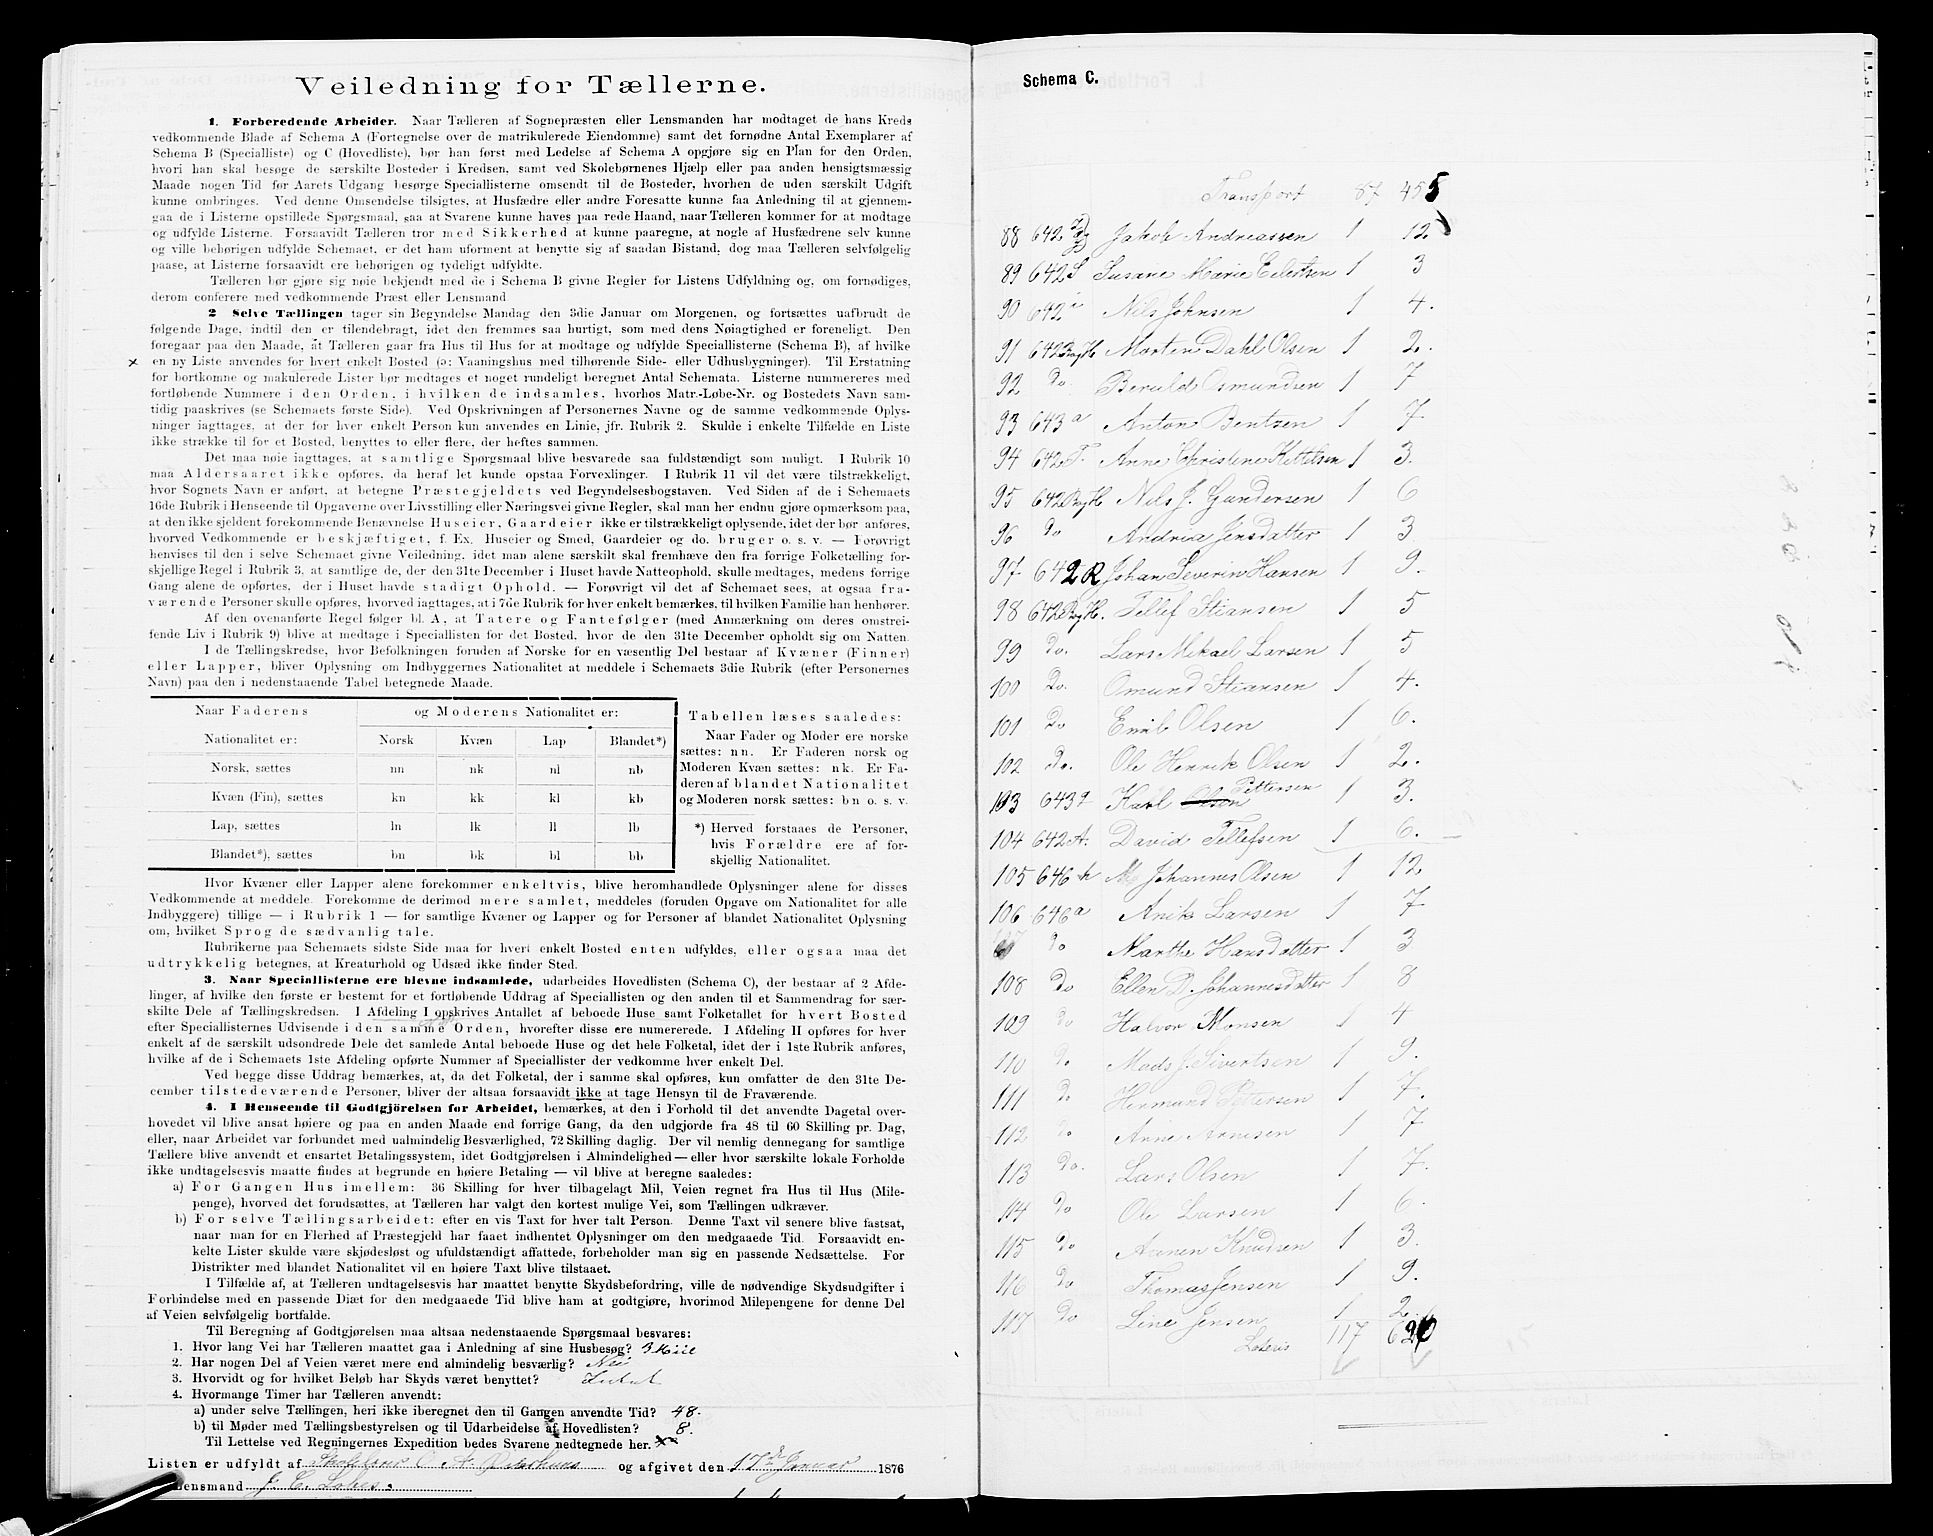 Veiledning for Tællerne.
1. Forberedende Arbeider. Naar Tælleren af Sognepræsten eller Lensmanden har modtaget de hans Kreds
vedkommende Blade af Schema A (Fortegnelse over de matrikulerede Eiendomme) samt det fornødne Antal Exemplarer af
Schema B (Specialliste) og C (Hovedliste), bør han først med Ledelse af Schema A opgjøre sig en Plan for den Orden,
hvori han skal besøge de særskilte Bosteder i Kredsen, samt ved Skolebørnenes Hjælp eller paa anden hensigtsmæssig
Maade nogen Tid før Aarets Udgang besørge Speciallisterne omsendt til de Bosteder, hvorhen de uden særskilt Udgift
kunne ombringes. Ved denne Omsendelse tilsigtes, at Husfædre eller andre Foresatte kunne faa Anledning til at gjennem-
gaa de i Listerne opstillede Spørgsmaal, saa at Svarene kunne haves paa rede Haand, naar Tælleren kommer for at modtage
og udfylde Listerne. Forsaavidt Tælleren tror med Sikkerhed at kunne paaregne, at nogle af Husfædrene selv kunne
og ville behørigen udfylde Schemaet, er det ham uforment at benytte sig af saadan Bistand, dog maa Tælleren selvfølgelig
paase, at Listerne forsaavidt ere behørigen og tydeligt udfyldte.
Tælleren bør gjøre sig nøie bekjendt med de i Schema B givne Regler for Listens Udfyldning og, om fornødiges,
derom conferere med vedkommende Præst eller Lensmand
2 Selve Tællingen tager sin Begyndelse Mandag den 3die Januar om Morgenen, og fortsættes uafbrudt de
følgende Dage, indtil den er tilendebragt, idet den fremmes saa hurtigt, som med dens Nøiagtighed er foreneligt. Den
foregaar paa den Maade, at Tælleren gaar fra Hus til Hus for at modtage og udfylde Speciallisterne (Schema B), af hvilke
en ny Liste anvendes for hvert enkelt Bosted (ɔ: Vaaningshus med tilhørende Side- eller Udhusbygninger). Til Erstatning
for bortkomne og makulerede Lister bør medtages et noget rundeligt beregnet Antal Schemata. Listerne nummereres med
fortløbende Nummere i den Orden, i hvilken de indsamles, hvorhos Matr.-Løbe-Nr. og Bostedets Navn sam-
tidig paaskrives (se Schemaets første Side). Ved Opskrivningen af Personernes Navne og de samme vedkommende Oplys-
ninger iagttages, at der for hver enkelt Person kun anvendes en Linie, jfr. Rubrik 2. Skulde i enkelte Tilfælde en Liste
ikke strække til for et Bosted, benyttes to eller flere, der heftes sammen.
Det maa nøie iagttages, at samtlige Spørgsmaal blive besvarede saa fuldstændigt som muligt. I Rubrik 10
maa Aldersaaret ikke opføres, da heraf let kunde opstaa Forvexlinger. I Rubrik 11 vil det være tilstrækkeligt,
hvor Sognets Navn er anført, at betegne Præstegjeldets ved Begyndelsesbogstaven. Ved Siden af de i Schemaets
16de Rubrik i Henseende til Opgaverne over Livsstilling eller Næringsvei givne Regler, skal man her endnu gjøre opmærksom paa,
at den ikke sjeldent forekommende Benævnelse Huseier, Gaardeier ikke er tilstrækkeligt oplysende, idet der bør anføres,
hvorved Vedkommende er beskjæftiget, f. Ex. Huseier og Smed, Gaardeier og do. bruger o. s. v. — Forøvrigt
henvises til den i selve Schemaet givne Veiledning, idet man alene særskilt skal fremhæve den fra forrige Folketælling for-
skjellige Regel i Rubrik 3, at samtlige de, der den 31te December i Huset havde Natteophold, skulle medtages, medens forrige
Gang alene de opførtes, der i Huset havde stadigt Ophold. — Forøvrigt vil det af Schemaet sees, at ogsaa fra-
værende Personer skulle opføres, hvorved iagttages, at i 7de Rubrik for hver enkelt bemærkes, til hvilken Familie han henhører.
Af den ovenanførte Regel følger bl. A, at Tatere og Fantefølger (med Anmærkning om deres omstrei-
fende Liv i Rubrik 9) blive at medtage i Speciallisten for det Bosted, hvor de den 31te December opholdt sig om Natten.
I de Tællingskredse, hvor Befolkningen foruden af Norske for en væsentlig Del bestaar af Kvæner (Finner)
eller Lapper, bliver Oplysning om Indbyggernes Nationalitet at meddele i Schemaets 3die Rubrik (efter Personernes
Navn) paa den i nedenstaaende Tabel betegnede Maade.
Naar Faderens og Moderens Nationalitet er:
Nationalitet er: Norsk Kvæn Lap Blandet*)
Norsk, sættes nn nk nl nb
Kvæn (Fin), sættes kn kk kl kb
Lap, sættes ln lk ll lb
Blandet*), sættes bn bk bl bb
Tabellen læses saaledes:
Naar Fader og Moder ere norske
sættes: nn. Er Faderen norsk og
Moderen Kvæn sættes: nk. Er Fa-
deren af blandet Nationalitet
og Moderen norsk sættes: bn o. s. v.
*) Herved forstaaes de Personer,
hvis Forældre ere af for-
skjellig Nationalitet.
Hvor Kvæner eller Lapper alene forekommer enkeltvis, blive heromhandlede Oplysninger alene for disses
Vedkommende at meddele. Forekomme de derimod mere samlet, meddeles (foruden Opgave om Nationalitet for alle
Indbyggere) tillige — i Rubrik 1 — for samtlige Kvæner og Lapper og for Personer af blandet Nationalitet Oplysning
om, hvilket Sprog de sædvanlig tale.
Rubrikerne paa Schemaets sidste Side maa for hvert enkelt Bosted enten udfyldes, eller ogsaa maa det
udtrykkelig betegnes, at Kreaturhold og Udsæd ikke finder Sted.
3. Naar Speciallisterne ere blevne indsamlede, udarbeides Hovedlisten (Schema C), der bestaar af 2 Afde-
linger, af hvilke den første er bestemt for et fortløbende Uddrag af Speciallisten og den anden til et Sammendrag for sær-
skilte Dele af Tællingskredsen. I Afdeling I opskrives Antallet af beboede Huse samt Folketallet for hvert Bosted
efter Speciallisternes Udvisende i den samme Orden, hvorefter disse ere numererede. I Afdeling II opføres for hver
enkelt af de særskilt udsondrede Dele det samlede Antal beboede Huse og det hele Folketal, idet der i 1ste Rubrik anføres,
hvilke af de i Schemaets 1ste Afdeling opførte Nummer af Speciallister der vedkomme hver enkelt Del.
Ved begge disse Uddrag bemærkes, at, da det Folketal, der i samme skal opføres, kun omfatter de den 31te De-
cember tilstedeværende Personer, bliver der altsaa forsaavidt ikke at tage Hensyn til de Fraværende.
4. I Henseende til Godtgjörelsen for Arbeidet, bemærkes, at den i Forhold til det anvendte Dagetal over-
hovedet vil blive ansat høiere og paa en anden Maade end forrige Gang, da den udgjorde fra 48 til 60 Skilling pr. Dag,
eller, naar Arbeidet var forbundet med ualmindelig Besværlighed, 72 Skilling daglig. Der vil nemlig dennegang for samtlige
Tællere blive anvendt et ensartet Betalingssystem, idet Godtgjörelsen i Almindelighed — eller hvor særskilte lokale Forholde
ikke undtagelsesvis maatte findes at begrunde en høiere Betaling — vil blive at beregne saaledes:
a) For Gangen Hus imellem: 36 Skilling for hver tilbagelagt Mil, Veien regnet fra Hus til Hus (Mile-
penge), hvorved det forudsættes, at Tælleren har valgt den kortest mulige Vei, som Tællingen udkræver.
b) For selve Tællingsarbeidet: efter en vis Taxt for hver talt Person. Denne Taxt vil senere blive fastsat,
naar man for en Flerhed af Præstegjeld har faaet indhentet Oplysninger om den medgaaede Tid. Forsaavidt en-
kelte Lister skulde være skjødesløst og ufuldstændigt affattede, forbeholder man sig en passende Nedsættelse. For
Distrikter med blandet Nationalitet vil en høiere Taxt blive tilstaaet.
I Tilfælde af, at Tælleren undtagelsesvis har maattet benytte Skydsbefordring, ville de nødvendige Skydsudgifter i
Forbindelse med en passende Diæt for den medgaaede Tid blive ham at godtgjøre, hvorimod Milepengene for denne Del
af Veien selvfølgelig bortfalde.
Til Beregning af Godtgjørelsen maa altsaa nedenstaaende Spørgsmaal besvares:
1. Hvor lang Vei har Tælleren maattet gaa i Anledning af sine Husbesøg? 3 Miil
2. Har nogen Del af Veien været mere end almindelig besværlig? Nei
3. Hvorvidt og for hvilket Beløb har Skyds været benyttet?
4. Hvormange Timer har Tælleren anvendt:
a) under selve Tællingen, heri ikke iberegnet den til Gangen anvendte Tid? 48.
b) til Møder med Tællingsbestyrelsen og til Udarbeidelse af Hovedlisten? 8.
Til Lettelse ved Regningernes Expedition bedes Svarene nedtegnede her.
Listen er udfyldt af og afgivet den 17de Januar 1876
Lensmand
Schema C.
Transport 87 455
88 642 Jakob Andreassen 1 12
89 642 S Susane Marie Eilertsen 1 3
90 642 i Nils Johnsen 1 4.
91 642 Byg H Morten Dahl Olsen 1 2.
92 Do. Beruld Osmundsen 1 7
93 643 a Anton Bentzen 1 7
94 642 T. Anne Christine Kittilsen 1 3.
95 642 Byg H Nils J. Gundersen 1 6
96 Do Andrea Jensdatter 1 3
97 642 R Johan Severin Hansen 1 9.
98 642 Byg H. Tellef Stiansen 1 5
99 Do. Lars Mikael Larsen 1 5
100 Do. Omund Stiansen 1 4.
101 Do Emil Olsen 1 6.
102 Do. Ole Henrik Olsen 1 2.
103 643 q Karl Olsen Pettersen 1 3.
104 642 A. David Tellefsen 1 6.
105 646 h Johannes Olsen 1 12
106 646 a Anik Larsen 1 7
Do Marthe Hansdatter 1 3
108 Do Ellen D. Johannesdatter 1 8
109 Do Halvor Monsen 1 4
110 Do Mads J. Sivertsen 1 9.
111 Do Hermand Pettersen 1 7.
112 Do Anne Arnesen 1 7
113 Do. Lars Olsen 1 7.
114 Do Ole Larsen 1 6.
115 Do Annen Knudsen 1 3.
116 Do Thomas Jensen 1 9.
117 Do Line Jensen 1 2.
Lateris 117 620